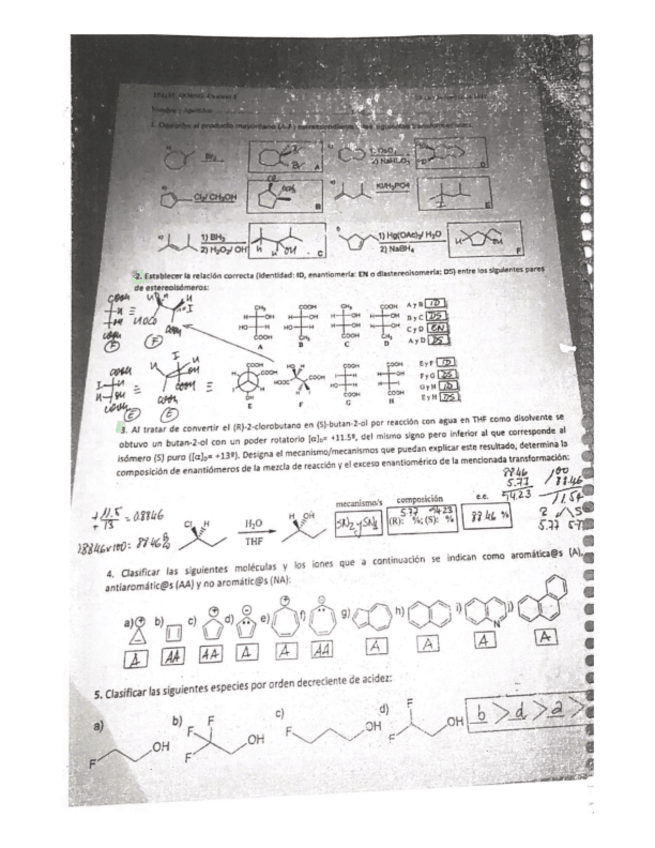 1. Describir el producto mayoritario (A-F) correspondiente a las siguientes transformaciones:
Br₂
A
1) OsO₄
2) NaHSO₃
D
Cl₂/ CH₃OH
B
KI/H₃PO4
E
1) BH₃
2) H₂O₂/ OH
C
1) Hg(OAc)₂/ H₂O
2) NaBH₄
F
2. Establecer la relación correcta (identidad: ID, enantiomería: EN o diastereoisomería: DS) entre los siguientes pares
de estereoisómeros:
A B C D
A y B ID
B y C DS
C y D EN
A y D DS
E F G H
E y F ID
F y G DS
G y H ID
E y H DS
3. Al tratar de convertir el (R)-2-clorobutano en (S)-butan-2-ol por reacción con agua en THF como disolvente se
obtuvo un butan-2-ol con un poder rotatorio [α]D= +11.5º, del mismo signo pero inferior al que corresponde al
isómero (S) puro ([α]D= +13º). Designa el mecanismo/mecanismos que puedan explicar este resultado, determina la
composición de enantiómeros de la mezcla de reacción y el exceso enantiomérico de la mencionada transformación:
88.46
5.77
94.23
100
88.46
11.54
R S
5.77 5.77
+11.5
+13 = 0.8846
0.8846x100= 88.46%
Cl H
H₂O
THF
H OH
mecanismo/s
SN2 y SN1
composición
5.77 94.23
(R): %; (S): %
e.e.
88.46 %
4. Clasificar las siguientes moléculas y los iones que a continuación se indican como aromática@s (A),
antiaromátic@s (AA) y no aromátic@s (NA):
a) b) c) d) e) f) g) h) i) j)
A AA AA A A AA A A A A
5. Clasificar las siguientes especies por orden decreciente de acidez:
a) F OH
b) F F F OH
c) F OH
d) F F OH
b > d > a >